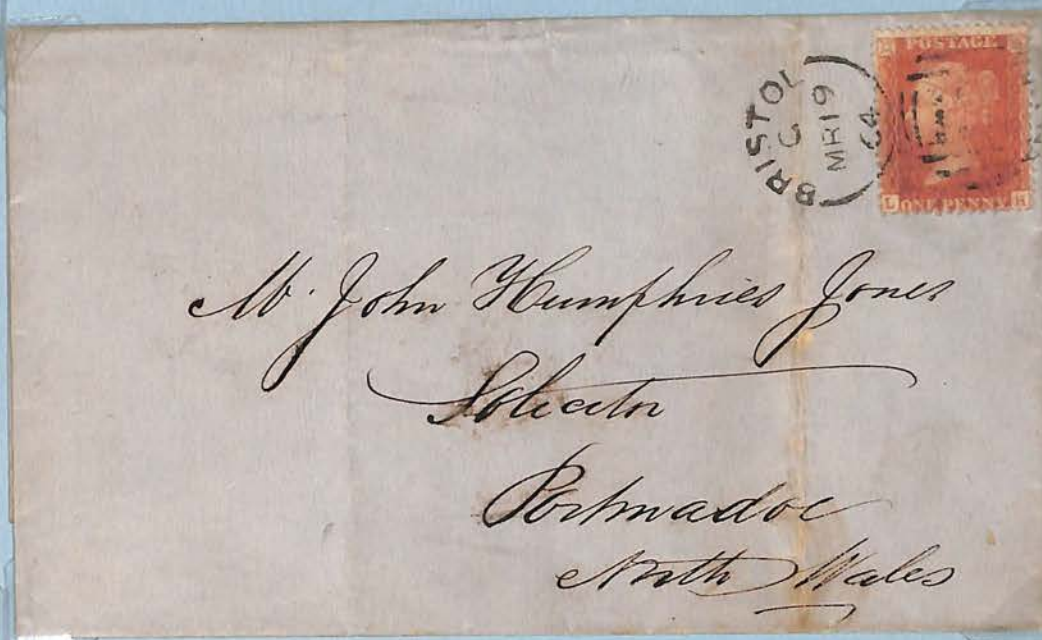 POSTAGE
BRISTOL
C
MR 19
64
L ONE PENNY H
Mr. John Humphries Jones
Solicitor
Portmadoc
North Wales